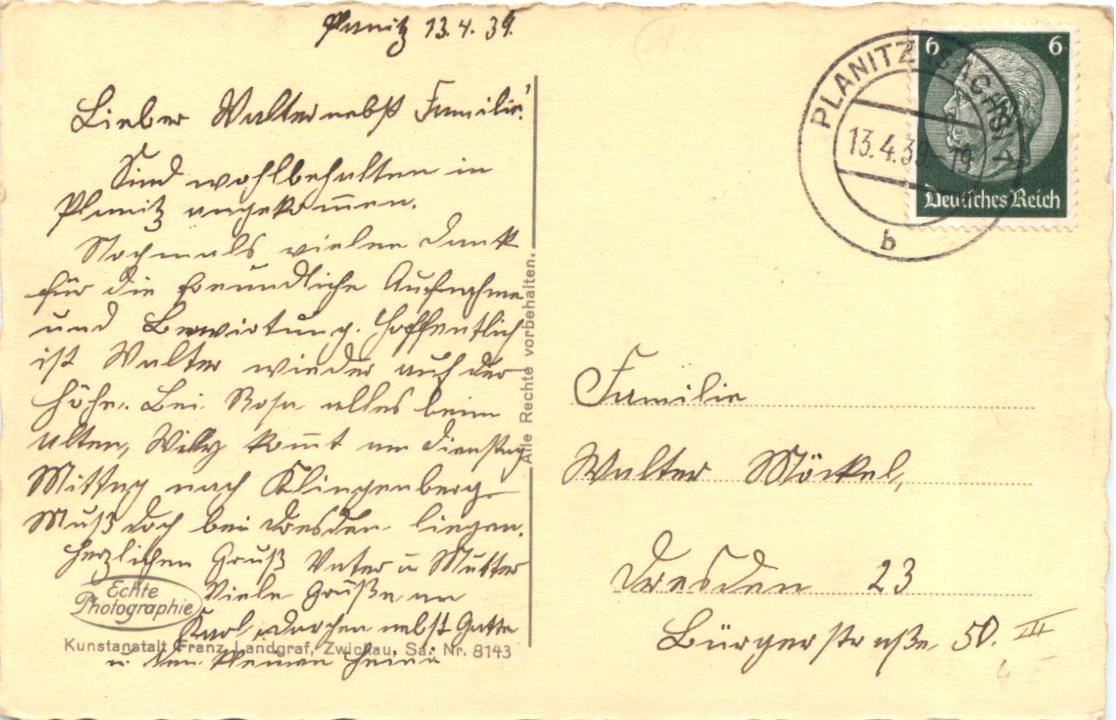 Planitz 13.4.39.
Lieber Walter nebst Familie!
Sind wohlbehalten in
Planitz angekom̅en.
Nochmals vielen Dank
für die freundliche Aufnahme
und Bewirtung. Hoffentlich
ist Walter wieder auf der
Höhe. Bei Rosa alles beim
alten, Willy kom̅t am Dienstag
Mittag nach Klingenberg
Muß doch bei Dresden liegen.
Herzlichen Gruß Vater u Mutter
Viele Grüße an
Karl, Dorchen nebst Gatte
u den kleinen Heinz
Echte
Photographie
Kunstanstalt Franz Landgraf, Zwickau, Sa. Nr. 8143
Alle Rechte vorbehalten.
PLANITZ (SACHS) 1
13.4.39 19
b
6 6
Deutsches Reich
Familie
Walter Möckel,
Dresden 23
Bürgerstraße 50. III